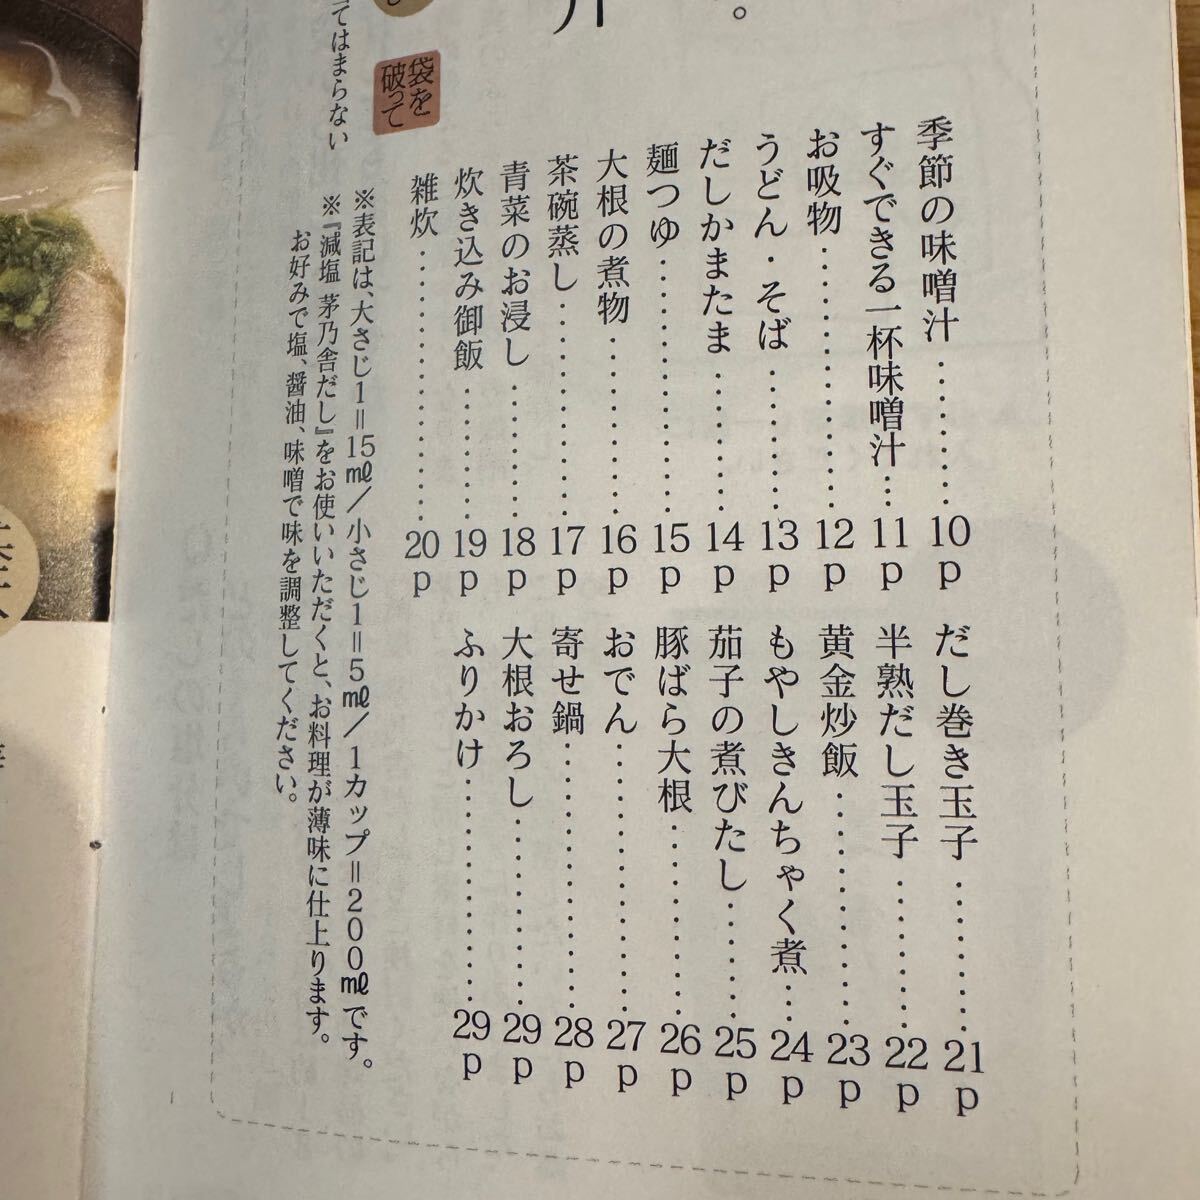 季節の味噌汁…………10p
すぐできる一杯味噌汁…11p
お吸物…………………12p
うどん・そば…………13p
だしかまたま…………14p
麺つゆ…………………15p
大根の煮物……………16p
茶碗蒸し………………17p
青菜のお浸し…………18p
炊き込み御飯…………19p
雑炊……………………20p
だし巻き玉子…………21p
半熟だし玉子…………22p
黄金炒飯………………23p
もやしきんちゃく煮…24p
茄子の煮びたし………25p
豚ばら大根……………26p
おでん…………………27p
寄せ鍋…………………28p
大根おろし……………29p
ふりかけ………………29p
袋を
破って
てはまらない
※表記は、大さじ1=15㎖/小さじ1=5㎖/1カップ=200㎖です。
※『減塩 茅乃舎だし』をお使いいただくと、お料理が薄味に仕上ります。
お好みで塩、醤油、味噌で味を調整してください。